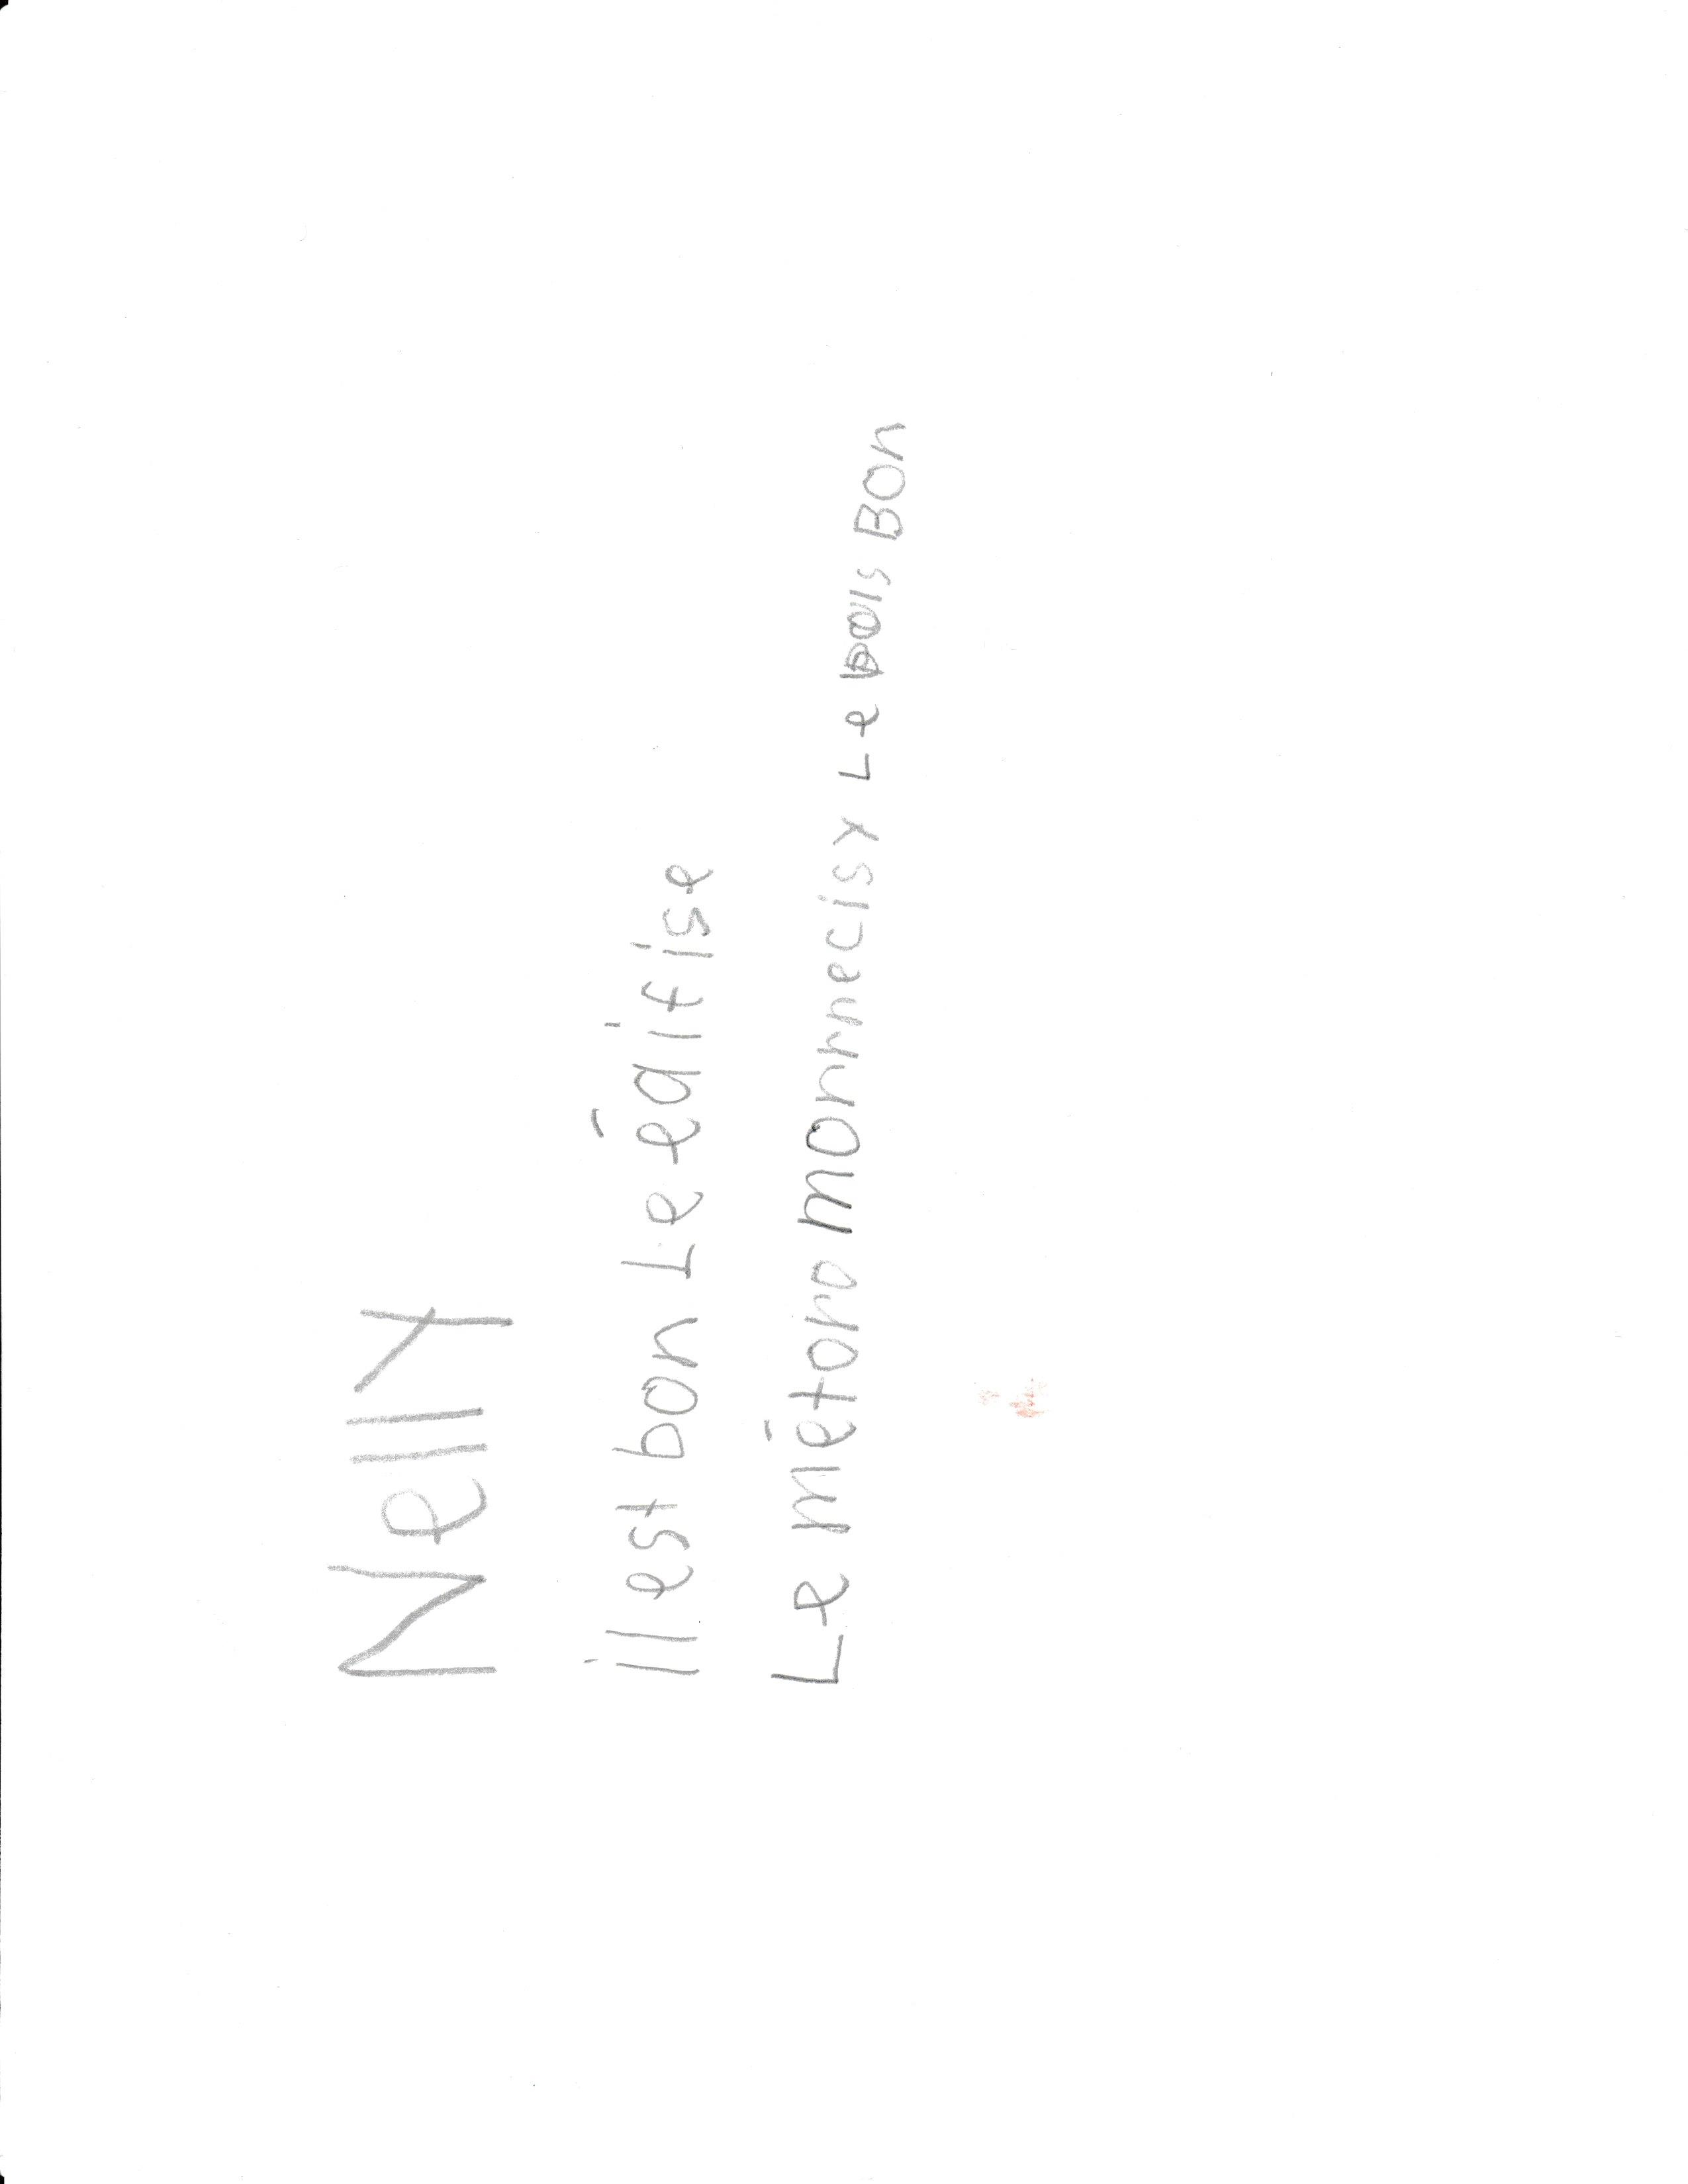 Nelly
il est bon Le édifise
Le métoro monnecisy Le pois Bon